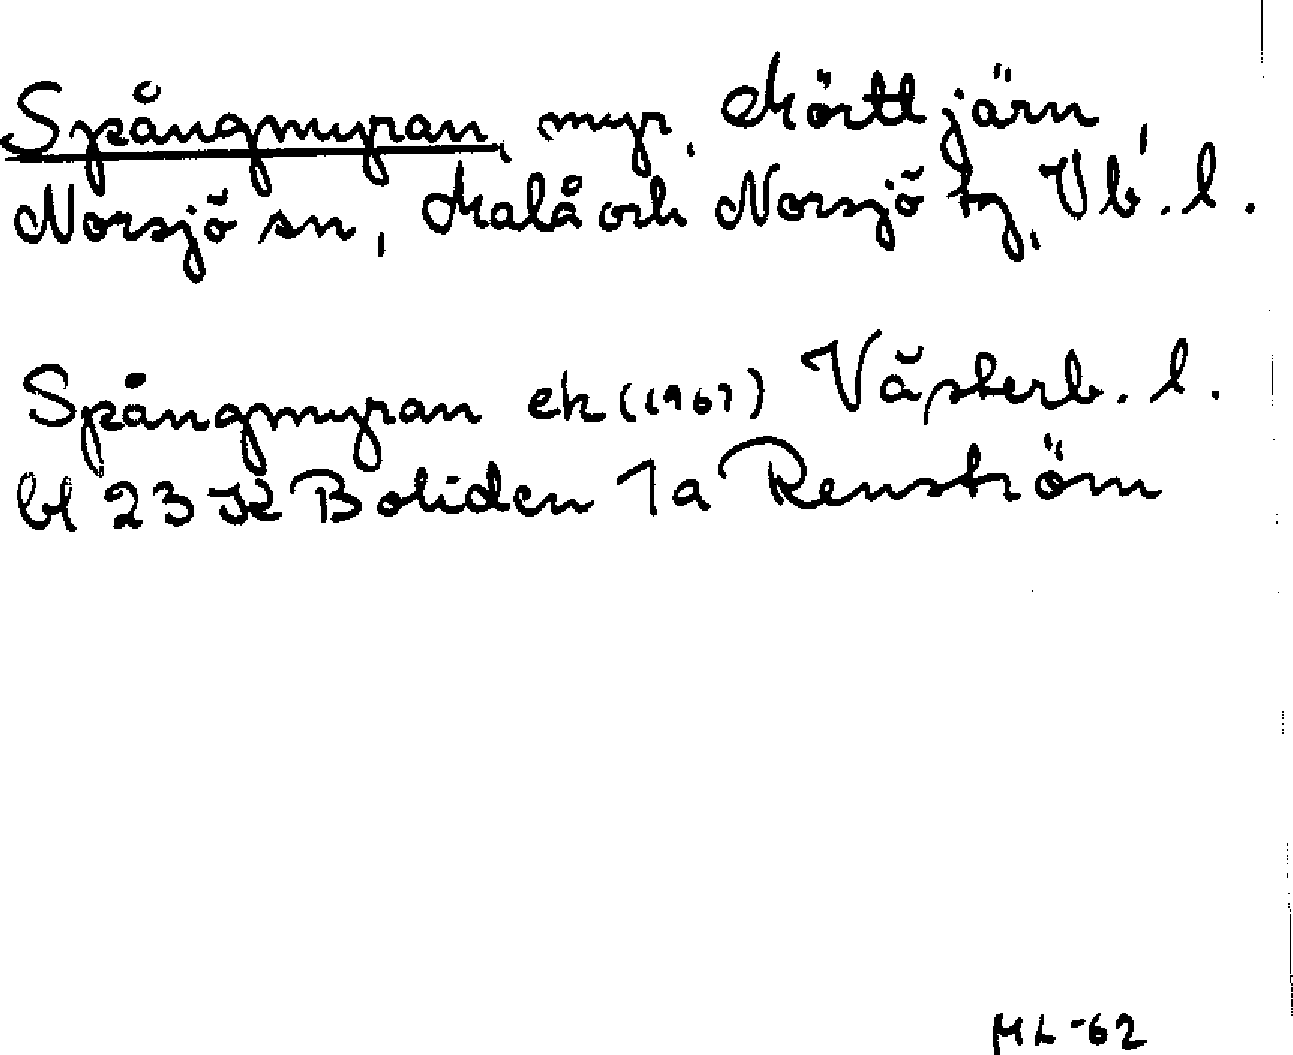 Spångmyran, myr, Mörttjärn,
Norsjö sn, Malå och Norsjö tg, Vb. l.
Spångmyran ek (1967) Västerb. l.
bl 23 K Boliden 1a Renström
ML-62